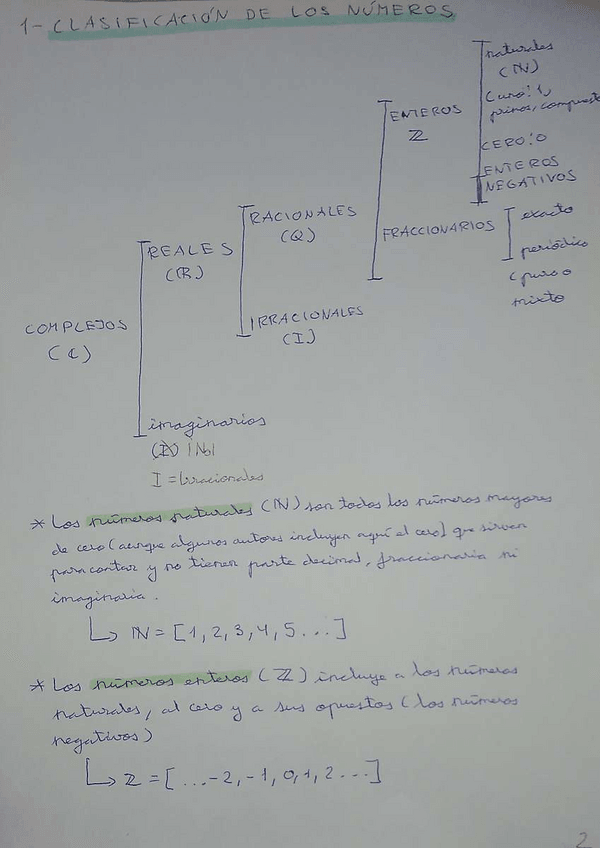 1- CLASIFICACIÓN DE LOS NÚMEROS
naturales
(ℕ)
(uno: 1,
primos, compuestos
ENTEROS
ℤ
CERO: 0
ENTEROS
NEGATIVOS
RACIONALES
(Q)
FRACCIONARIOS
exacto
periódico
(puro o
mixto
REALES
(ℝ)
IRRACIONALES
(I)
COMPLEJOS
(ℂ)
imaginarios
I = Irracionales
* Los números naturales (ℕ) son todos los números mayores
de cero (aunque algunos autores incluyen aquí el cero) que sirven
para contar y no tienen parte decimal, fraccionaria ni
imaginaria.
↳ ℕ = [1, 2, 3, 4, 5...]
* Los números enteros (ℤ) incluye a los números
naturales, al cero y a sus opuestos (los números
negativos)
↳ ℤ = [...-2, -1, 0, 1, 2...]
2